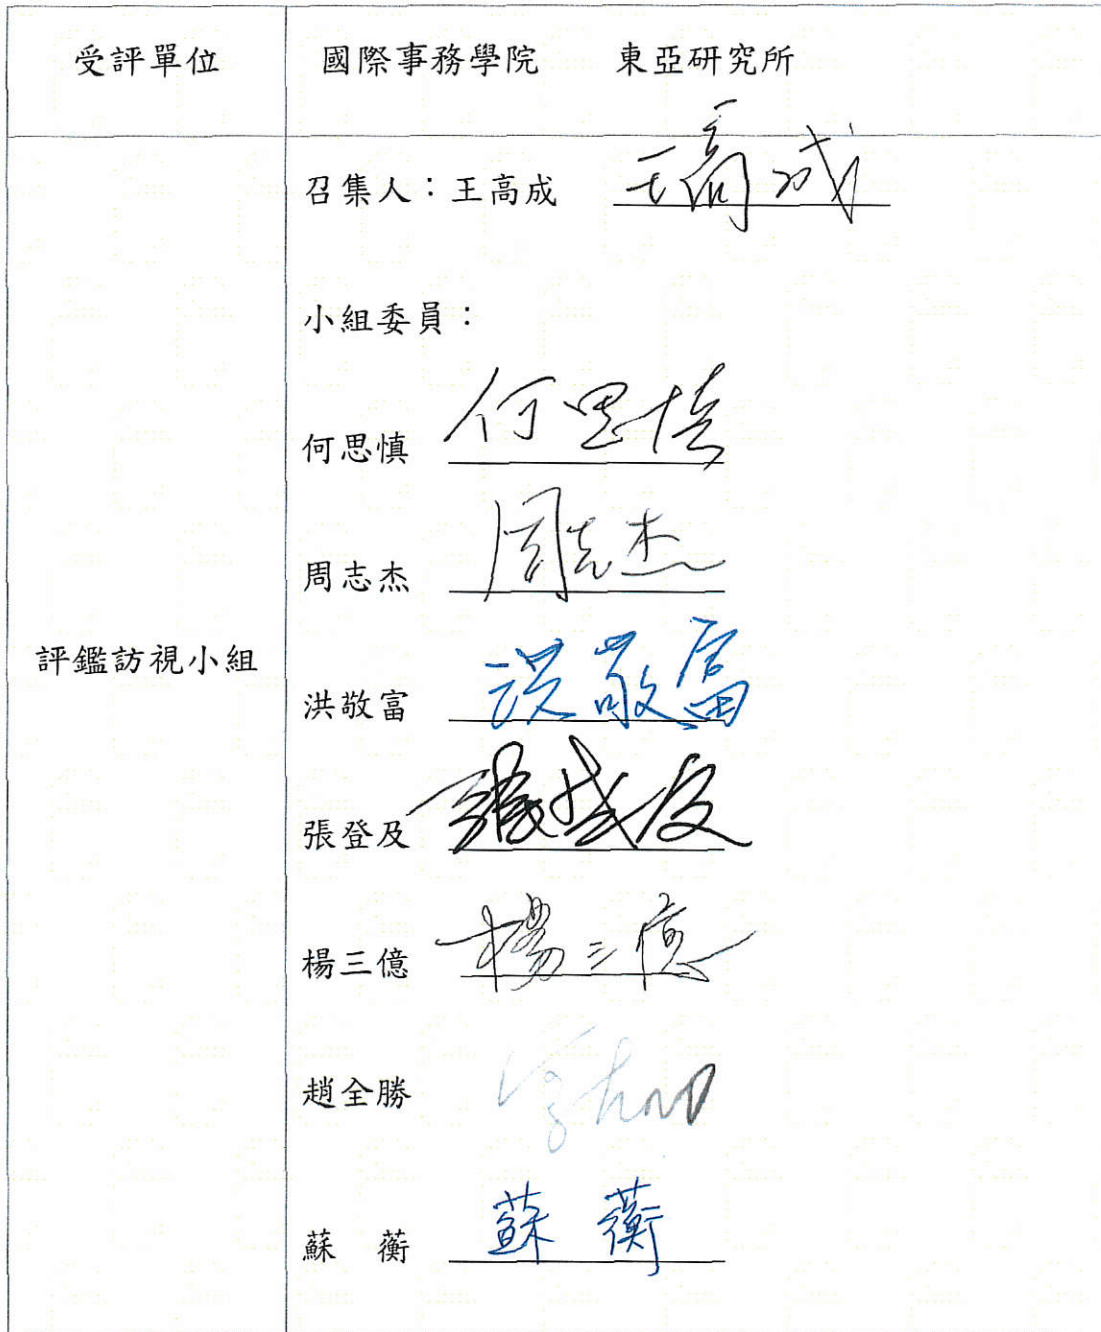 受評單位 國際事務學院 東亞研究所
召集人：王高成 王高成
小組委員：
何思慎 何思慎
周志杰 周志杰
評鑑訪視小組
洪敬富 洪敬富
張登及 張登及
楊三億 楊三億
趙全勝
蘇 蘅 蘇蘅